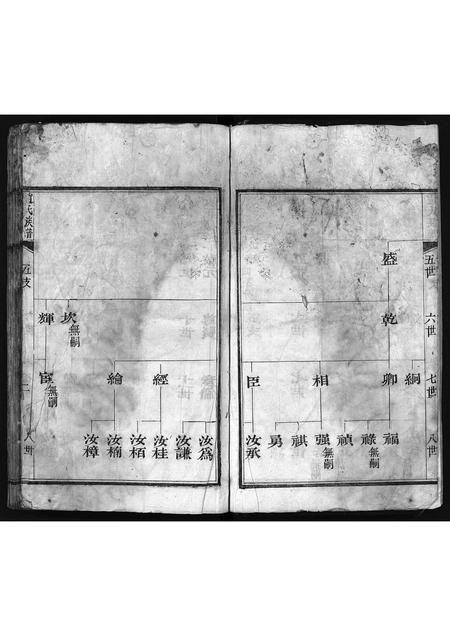 五世
六世
七世
八世
盛
乾
絅
卿
相
臣
福
祿無嗣
禎
强無嗣
祺
勇
汝承
坎無嗣
輝
經
綸
宦無嗣
汝爲
汝謙
汝桂
汝栢
汝楠
汝樟
氏族譜
五支
八世